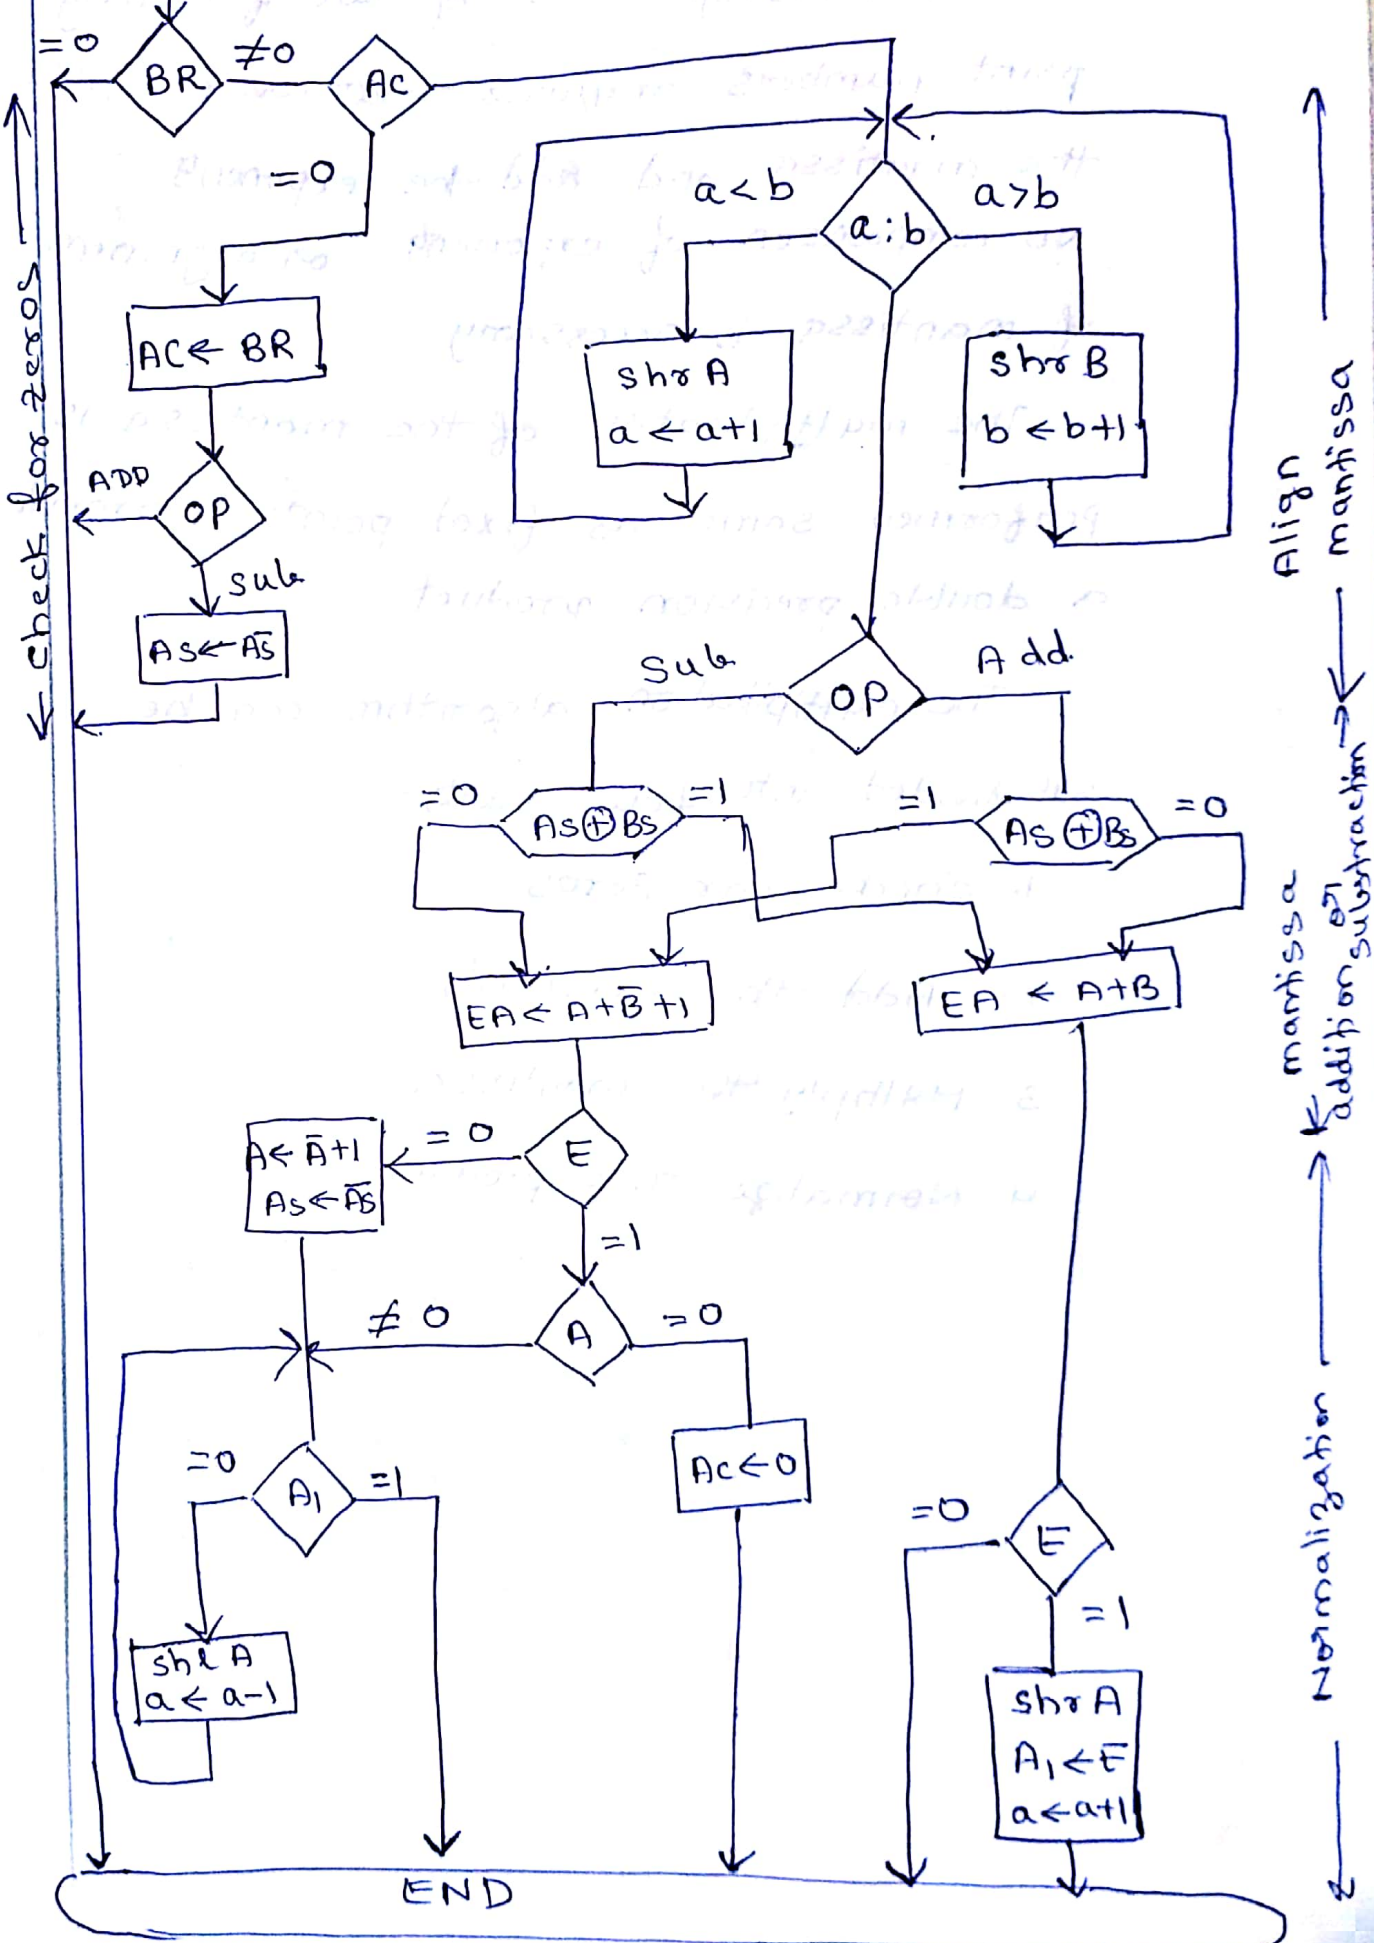 =0
BR
≠0
AC
=0
AC ← BR
ADD
OP
Sub
As ← A̅s̅
← check for zeros →
a<b
a:b
a>b
shr A
a ← a+1
shr B
b ← b+1
Align
mantissa
Sub
OP
Add.
=0
As ⊕ Bs
=1
=1
As ⊕ Bs
=0
EA ← A+B̅+1
EA ← A+B
mantissa
addition or
substraction
A ← A̅+1
As ← A̅s̅
=0
E
=1
≠ 0
A
=0
AC ← 0
=0
A₁
=1
shl A
a ← a-1
=0
E
=1
shr A
A₁ ← E
a ← a+1
Normalization
END